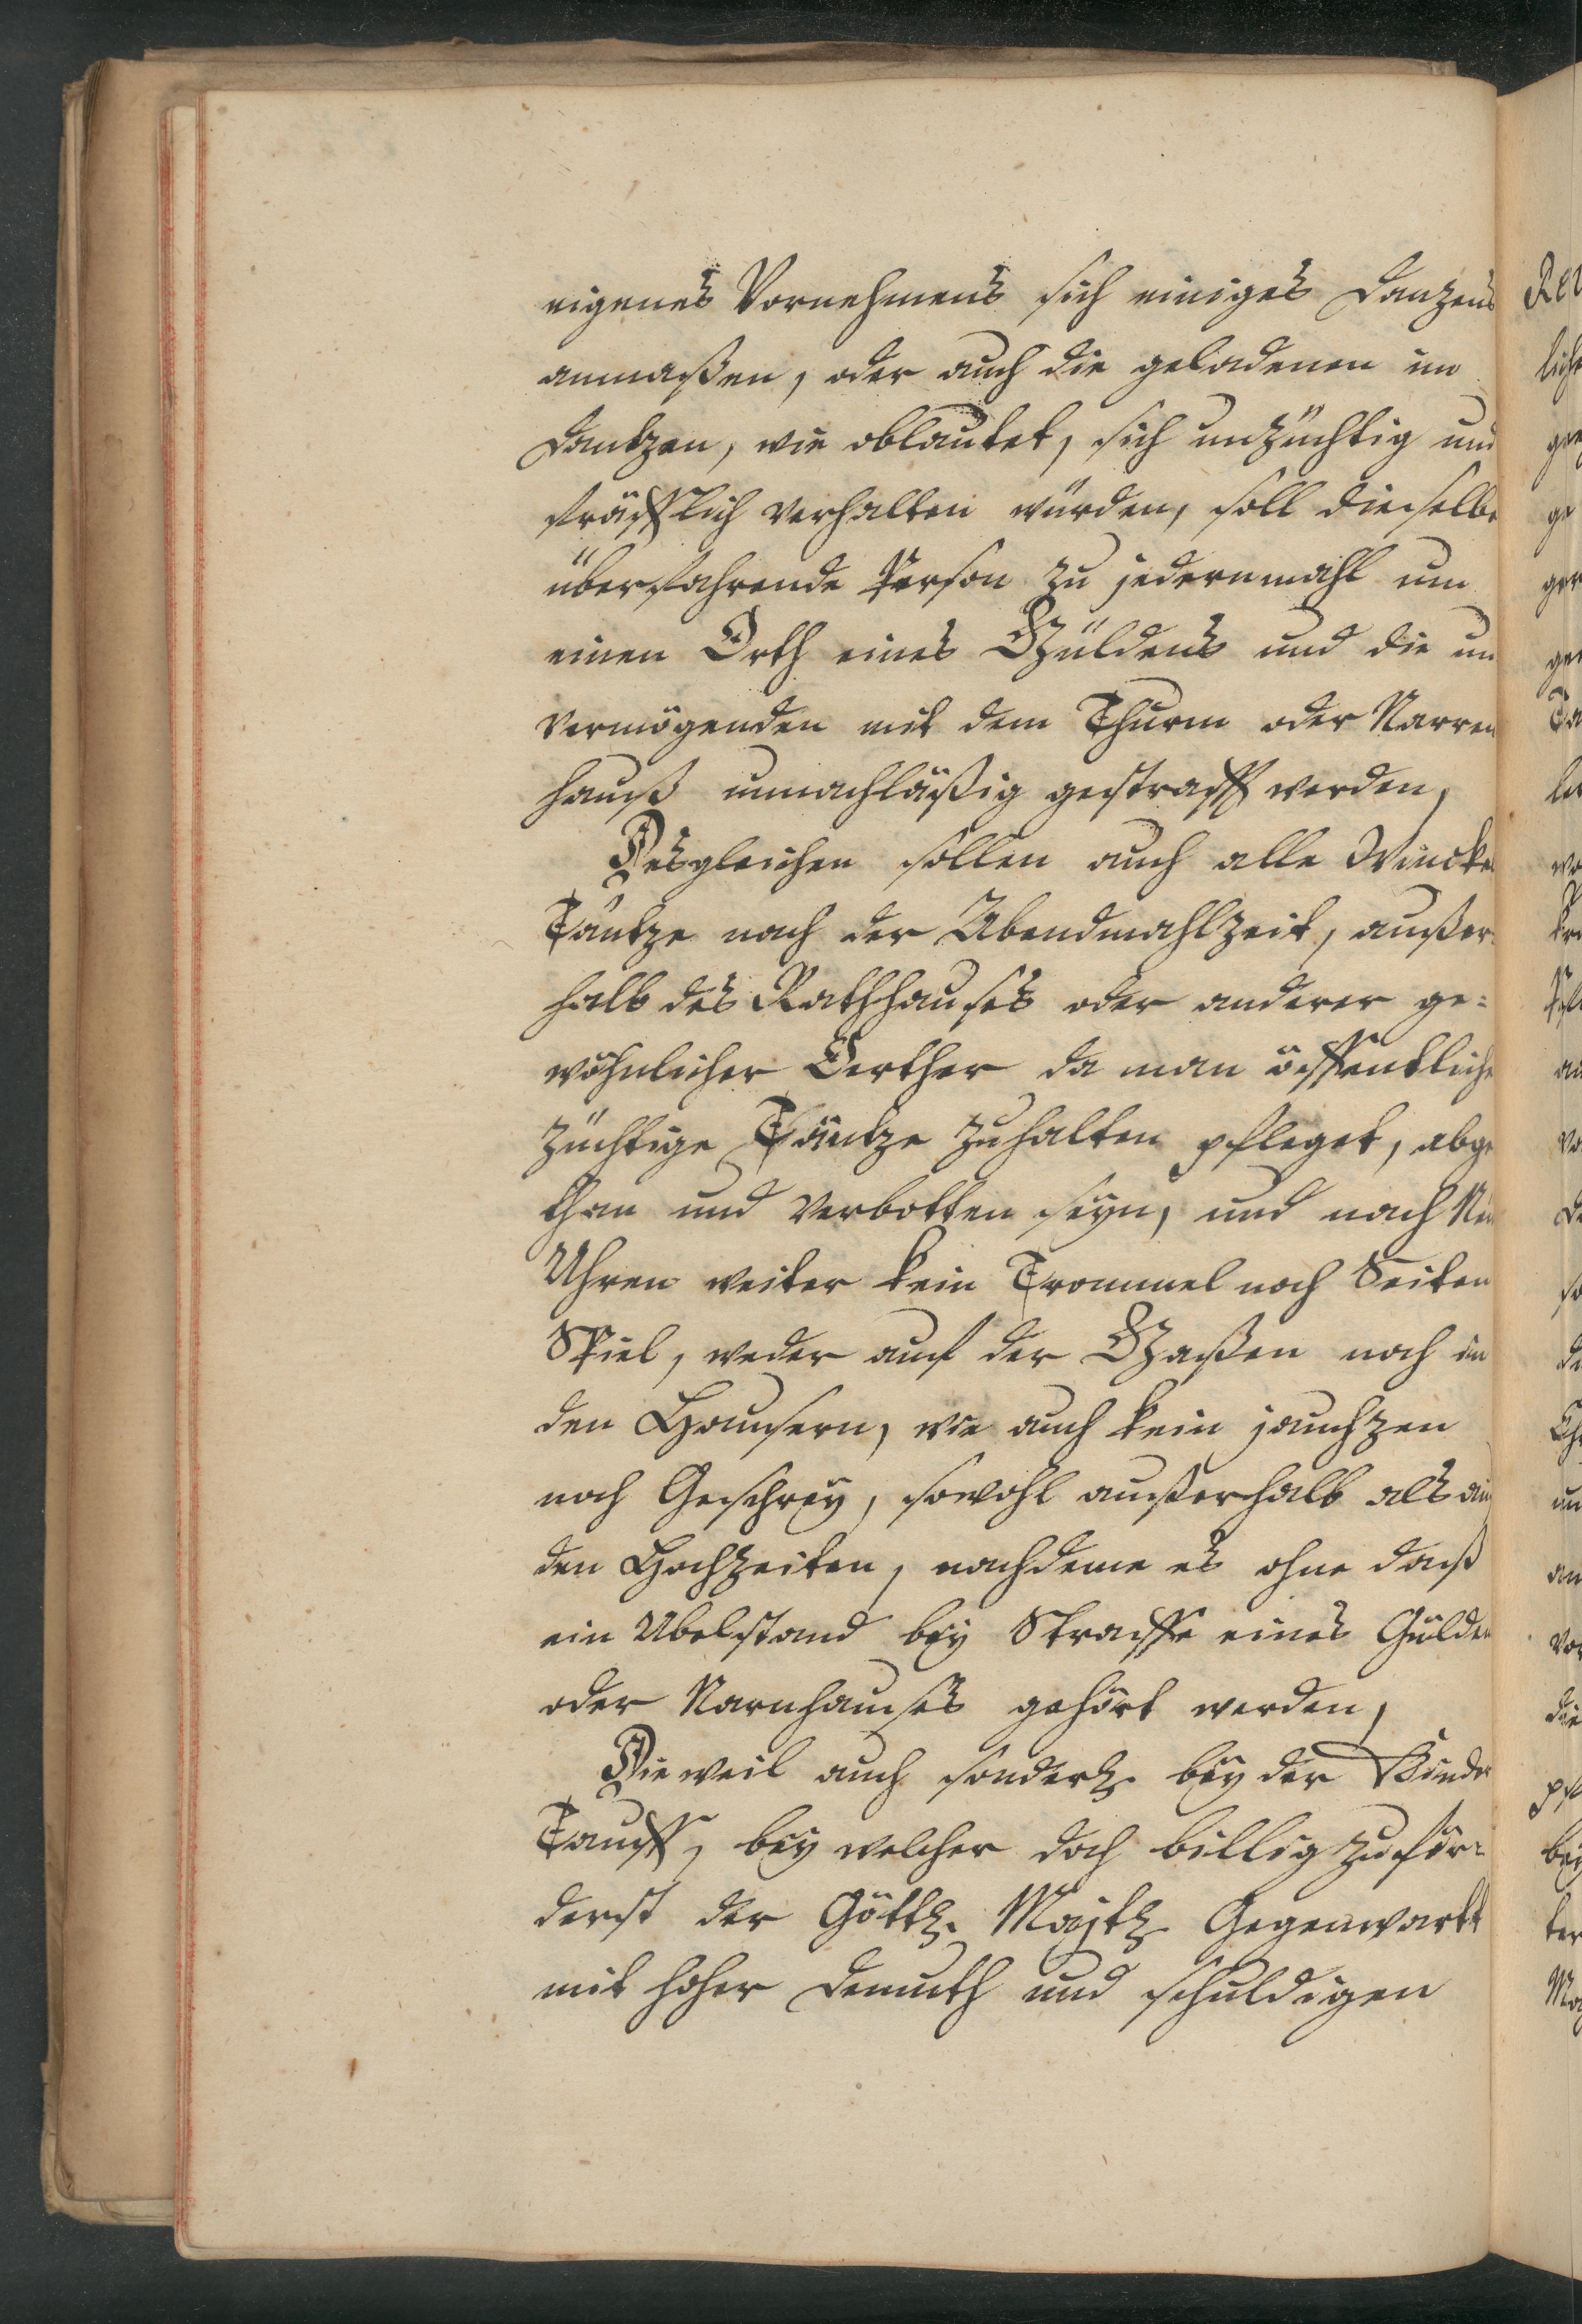 eigenes Vornehmens sich einiges Danzens
anmaßen, oder auch die geladenen im
Dantzen, wie oblautet, sich unzüchtig und
sträfflich verhalten würden, soll dieselbe
überfahrende Person zu jedernmahl um
einen Orth eines Güldens und die un
vermögenden mit dem Thurm oder Narren
hauß unnachläßig gestrafft werden,
Desgleichen sollen auch alle Winckel
Täntze nach der Abendmahlzeit, außer
halb des Rathhauses oder anderer ge=
wöhnlicher Oerther da man öffentliche
züchtige Täntze zuhalten pfleget, abge
than und verbotten seyn, und nach
Uhren weiter kein Trommel noch Seiten
Spiel, weder auf der Gaßen noch in
den Hausern, wie auch kein jauchzen
noch Geschrey, sowohl außerhalb als
den Hochzeiten, nachdeme es ohne daß
ein Ubelstand bey Straffe eines Gulden
oder Narnhauses gehört werden,
Dieweil auch sonderl. bey der Kinder
Tauff, bey welcher doch billig zuför=
derst der Göttl. Majtl. Gegenwartt
mit hoher Demuth und schuldigen